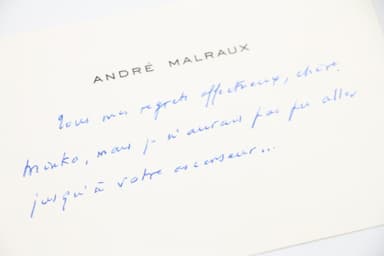 ANDRÉ MALRAUX
Tous mes regrets affectueux, chère
Minka, mais je n'aurais pas pu aller
jusqu'à votre ascenseur...